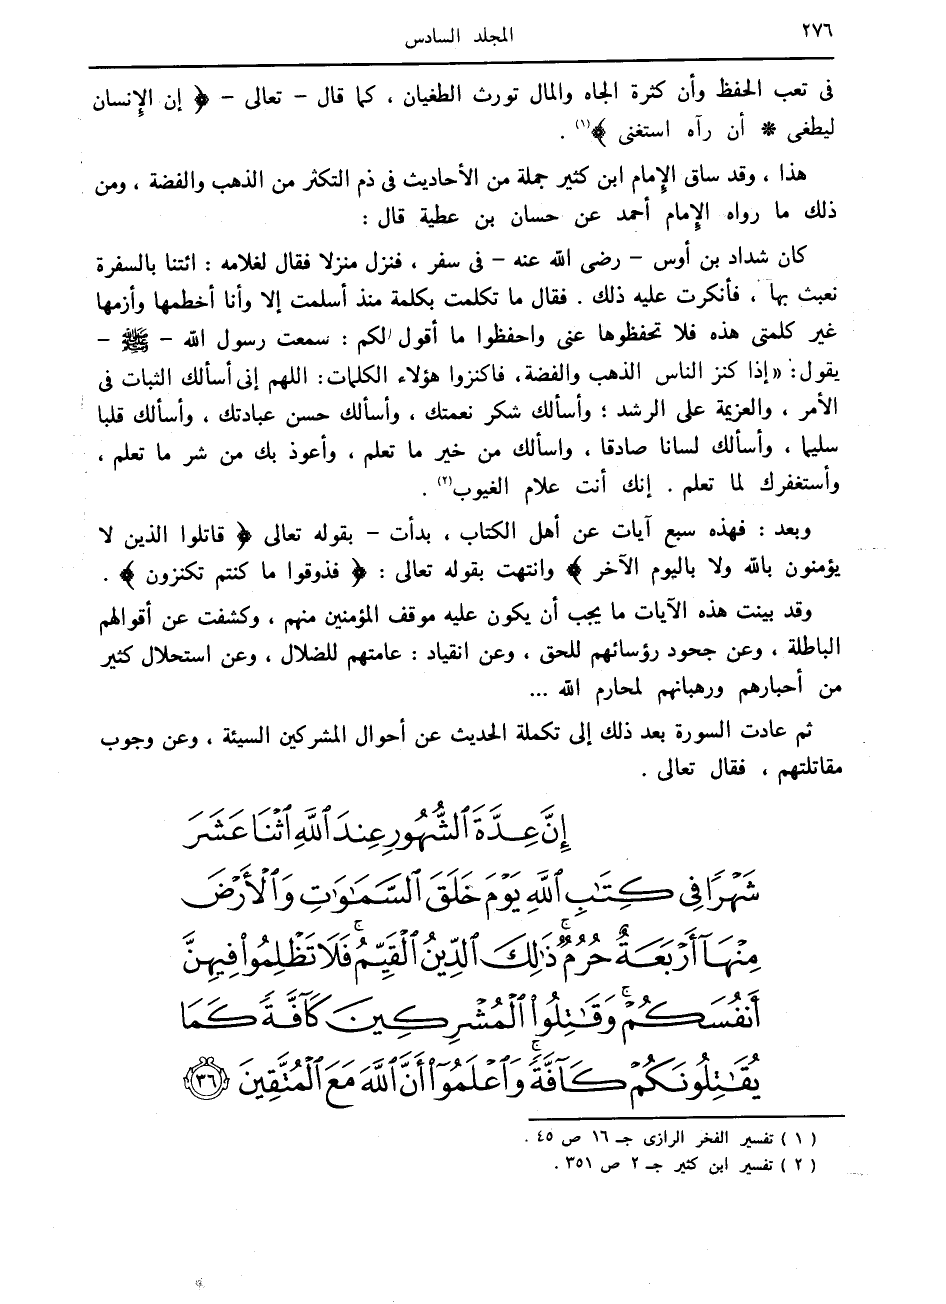 ٢٧٦
المجلد السادس
فى تعب الحفظ وأن كثرة الجاه والمال تورث الطغيان ، كما قال – تعالى – ﴿ إن الإنسان
ليطغى * أن رآه استغنى ﴾(١) .
هذا ، وقد ساق الإمام ابن كثير جملة من الأحاديث فى ذم التكثر من الذهب والفضة ، ومن
ذلك ما رواه الإمام أحمد عن حسان بن عطية قال :
كان شداد بن أوس – رضى الله عنه – فى سفر ، فنزل منزلا فقال لغلامه : ائتنا بالسفرة
نعبث بها ، فأنكرت عليه ذلك . فقال ما تكلمت بكلمة منذ أسلمت إلا وأنا أخطمها وأزمها
غير كلمتى هذه فلا تحفظوها عنى واحفظوا ما أقول لكم : سمعت رسول الله – ﷺ –
يقول : «إذا كنز الناس الذهب والفضة، فاكنزوا هؤلاء الكلمات: اللهم إنى أسألك الثبات فى
الأمر ، والعزيمة على الرشد ؛ وأسألك شكر نعمتك ، وأسألك حسن عبادتك ، وأسألك قلبا
سليما ، وأسألك لسانا صادقا ، واسألك من خير ما تعلم ، وأعوذ بك من شر ما تعلم ،
وأستغفرك لما تعلم . إنك أنت علام الغيوب(٢) .
وبعد : فهذه سبع آيات عن أهل الكتاب ، بدأت – بقوله تعالى ﴿ قاتلوا الذين لا
يؤمنون بالله ولا باليوم الآخر ﴾ وانتهت بقوله تعالى : ﴿ فذوقوا ما كنتم تكنزون ﴾ .
وقد بينت هذه الآيات ما يجب أن يكون عليه موقف المؤمنين منهم ، وكشفت عن أقوالهم
الباطلة ، وعن جحود رؤسائهم للحق ، وعن انقياد : عامتهم للضلال ، وعن استحلال كثير
من أحبارهم ورهبانهم لمحارم الله ...
ثم عادت السورة بعد ذلك إلى تكملة الحديث عن أحوال المشركين السيئة ، وعن وجوب
مقاتلتهم ، فقال تعالى .
إِنَّ عِدَّةَ ٱلشُّهُورِ عِندَ ٱللَّهِ ٱثْنَا عَشَرَ
شَهْرًا فِي كِتَٰبِ ٱللَّهِ يَوْمَ خَلَقَ ٱلسَّمَٰوَٰتِ وَٱلْأَرْضَ
مِنْهَآ أَرْبَعَةٌ حُرُمٌ ۚ ذَٰلِكَ ٱلدِّينُ ٱلْقَيِّمُ ۚ فَلَا تَظْلِمُوا۟ فِيهِنَّ
أَنفُسَكُمْ ۚ وَقَٰتِلُوا۟ ٱلْمُشْرِكِينَ كَآفَّةً كَمَا
يُقَٰتِلُونَكُمْ كَآفَّةً ۚ وَٱعْلَمُوٓا۟ أَنَّ ٱللَّهَ مَعَ ٱلْمُتَّقِينَ ٣٦
( ١ ) تفسير الفخر الرازى جـ ١٦ ص ٤٥ .
( ٢ ) تفسير ابن كثير جـ ٢ ص ٣٥١ .